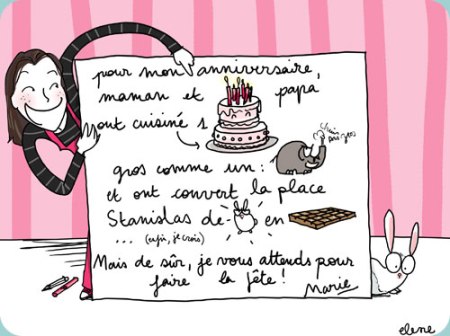 pour mon anniversaire,
maman et papa
ont cuisiné 1
gros comme un :
et ont couvert la place
Stanislas de en
... (enfin, je crois)
Mais de sûr, je vous attends pour
faire la fête !
Marie
elene